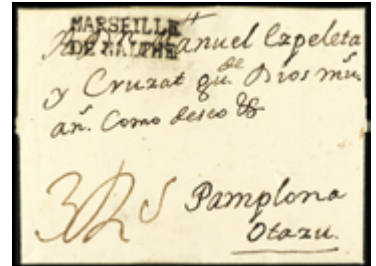 MARSEILLE
DE MALTHE
Manuel Ezpeleta
y Cruzat qu.de Dios ms.
as. Como deseo &
Pamplona
Otazu.